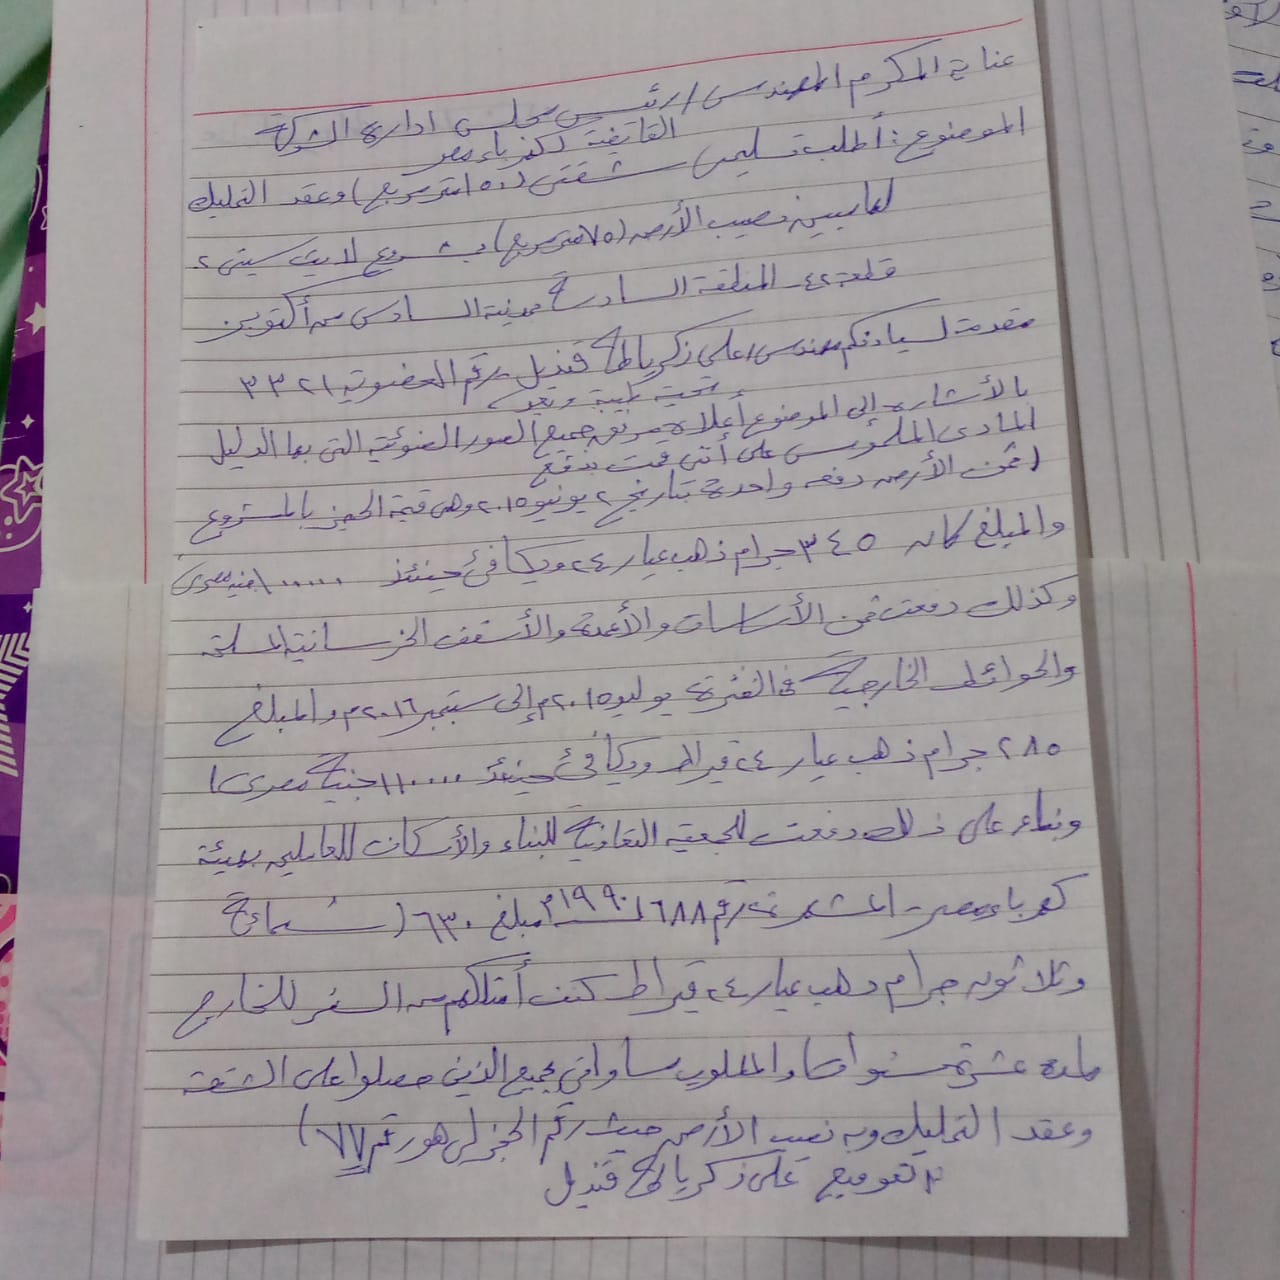 عناية المكرم المهندس / رئيس مجلس ادارة الشركة
القابضة لكهرباء مصر
الموضوع : أطلب تسليمى شقتى (١٥٠ متر مربع) وعقد التمليك
نصيب الأرض (٧٥ متر مربع) بمشروع لايت سيتى ٢
قطعة ٤٢ - المنطقة السادسة مدينة السادس من أكتوبر
مقدمة لسيادتكم مهندس / على زكريا قنديل رقم العضوية ٣٣٢١
تحية طيبة وبعد
بالأشارة إلى الموضوع أعلاه جميع الصور الضوئية التى بها الدليل
المادى الملموس على أننى قمت بدفع
(ثمن الأرض دفعه واحدة بتاريخ ٢ يونيو ٢٠١٥ وهى قيمة الحجز بالمشروع
والمبلغ كان ٣٤٥ جرام ذهب عيار ٢٤ ويكافئ حينئذ ١٠٠٠٠٠ جنيه مصرى
وكذلك دفعت ثمن الأساسات والأعمدة والأسقف الخرسانية المسلحة
والحوائط الخارجية فى الفترة يوليو ٢٠١٥م إلى سبتمبر ٢٠١٦م والمبلغ
٢٨٥ جرام ذهب عيار ٢٤ قيراط ويكافئ حينئذ ١١٠٠٠٠ جنية مصرى)
وبناء على ذلك دفعت للجمعية التعاونية للبناء والأسكان للعاملين بهيئة
كهرباء مصر - المشهرة رقم ١٦٨٨ لسنة ١٩٩٠م مبلغ ٦٣٠ (ستمائة
وثلاثون جرام دهب عيار ٢٤ قيراط كنت أمتلكهم من السفر للخارج
لمدة عشرة سنوات والمطلوب مساواتى بجميع الذين حصلوا على الشقة
وعقد التمليك وبه نصيب الأرض حيث رقم الحجز لى هو رقم ٧٧)
توقيع على زكريا قنديل